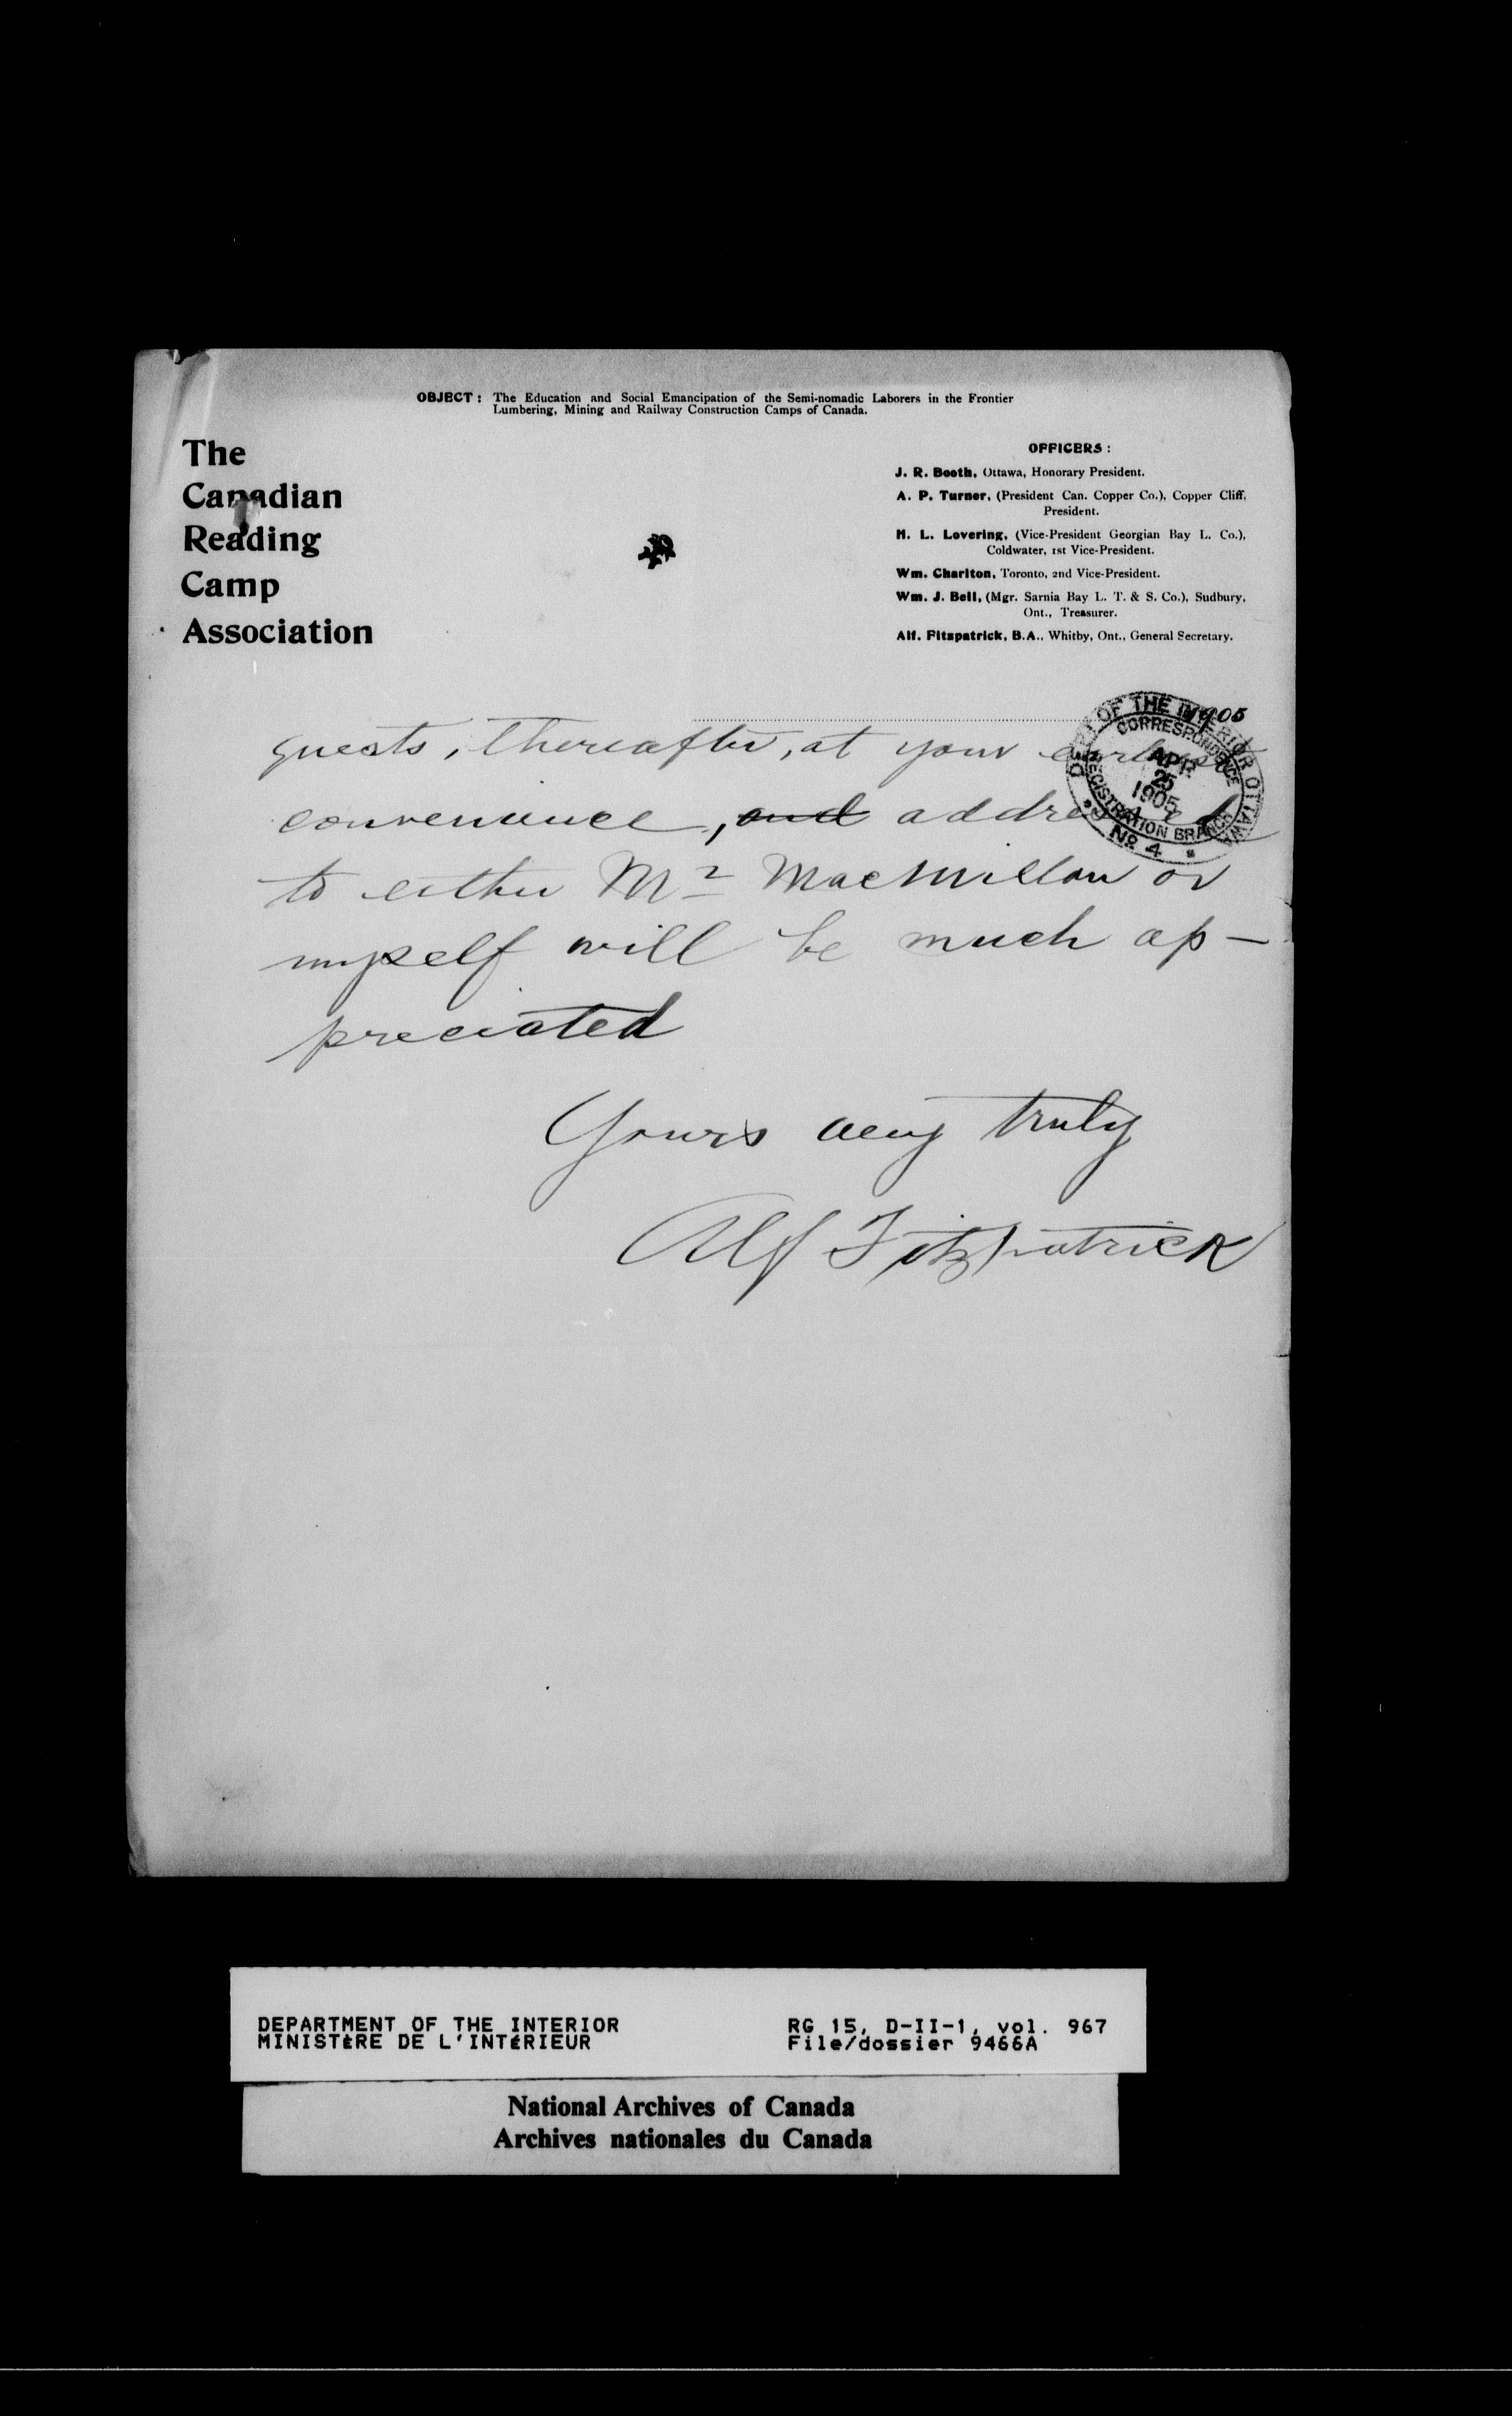 OBJECT: The Education and Social Emancipation of the Semi-nomadic Laborers in the Frontier
Lumbering, Mining and Railway Construction Camps of Canada.
The
Canadian
Reading
Camp
Association
OFFICERS:
J. R. Booth, Ottawa, Honorary President.
A. P. Turner, (President Can. Copper Co.), Copper Cliff,
President.
H. L. Lovering, (Vice-President Georgian Bay L. Co.),
Coldwater, 1st Vice-President.
Wm. Charlton, Toronto, 2nd Vice-President.
Wm. J. Bell, (Mgr. Sarnia Bay L. T. & S. Co.), Sudbury,
Ont., Treasurer.
Alf. Fitzpatrick, B.A., Whitby, Ont., General Secretary.
1905
DEPT OF THE INTERIOR OTTAWA
CORRESPONDENCE
APR
25
1905
REGISTRATION BRANCH
No 4
quests, thereafter, at your earliest
convenience, and addressed
to either Mr MacMillan or
myself will be much ap-
preciated
Yours very truly
Alf Fitzpatrick
DEPARTMENT OF THE INTERIOR
MINISTÈRE DE L'INTÉRIEUR
RG 15, D-II-1, vol. 967
File/dossier 9466A
National Archives of Canada
Archives nationales du Canada